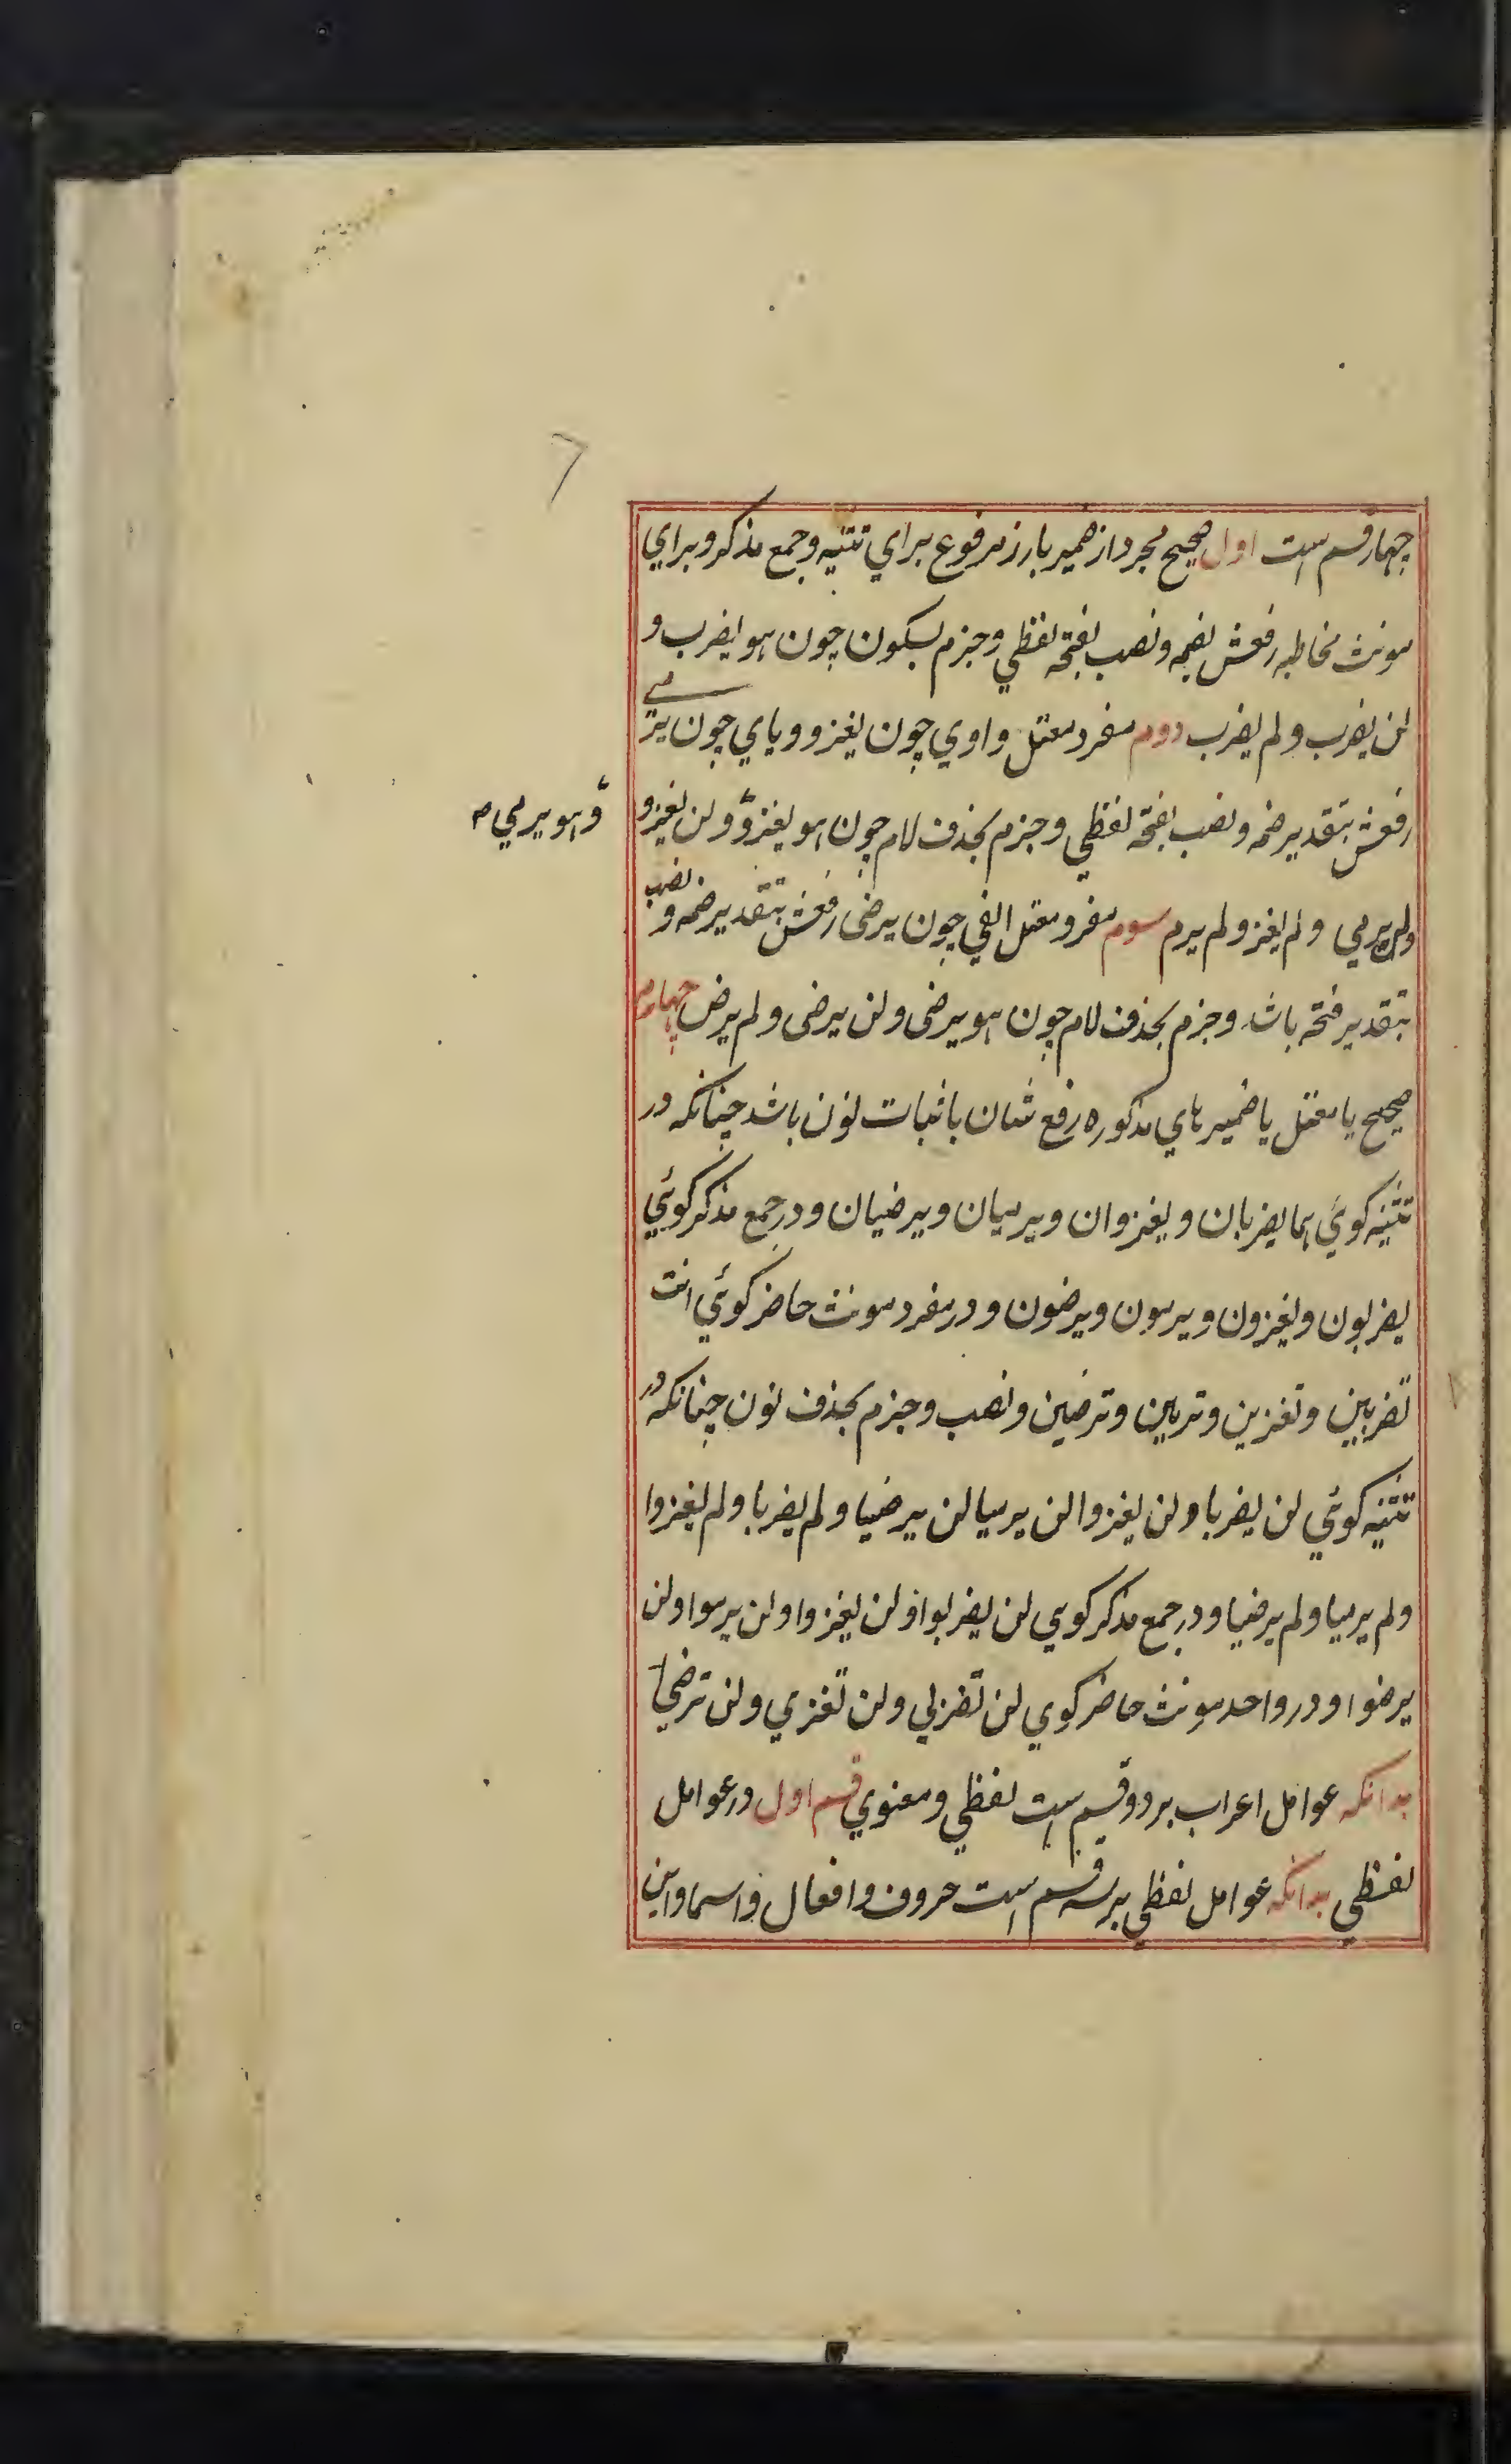 چهار قسم است اول صحیح مجرد از ضمیر بارز مرفوع برای تثنیه و جمع مذکر و برای
مونث مخاطبه رفعش بضمه و نصب بفتحه لفظی و جزم بسکون چون هو یضرب و
لن یضرب و لم یضرب دوم مفرد معتل واوی چون یغزو و یای چون یرمی
رفعش بتقدیر ضمه و نصب بفتحه لفظی و جزم بحذف لام چون هو یغزو و لن یغزو
و هو یرمی ص
و لن یرمی و لم یغز و لم یرم سوم مفرد معتل الفی چون یرضی رفعش بتقدیر ضمه و نصب
بتقدیر فتحه باشد و جزم بحذف لام چون هو یرضی و لن یرضی و لم یرض چهارم
صحیح یا معتل با ضمیرهای مذکوره رفع شان باثبات نون باشد چنانکه در
تثنیه کوئی هما یضربان و یغزوان و یرمیان و یرضیان و در جمع مذکر کوئی
یضربون و یغزون و یرمون و یرضون و در مفرد مونث حاضر کوئی انت
تضربین و تغزین و ترمین و ترضین و نصب و جزم بحذف نون چنانکه در
تثنیه کوئی لن یضربا و لن یغزوا لن یرمیا لن یرضیا و لم یضربا و لم یغزوا
و لم یرمیا و لم یرضیا و در جمع مذکر کوی لن یضربوا و لن یغزوا و لن یرموا و لن
یرضوا و در واحد مونث حاضر کوی لن تضربی و لن تغزی و لن ترضی
بدانکه عوامل اعراب بر دو قسم است لفظی و معنوی قسم اول در عوامل
لفظی بدانکه عوامل لفظی بر سه قسم است حروف و افعال و اسما و این